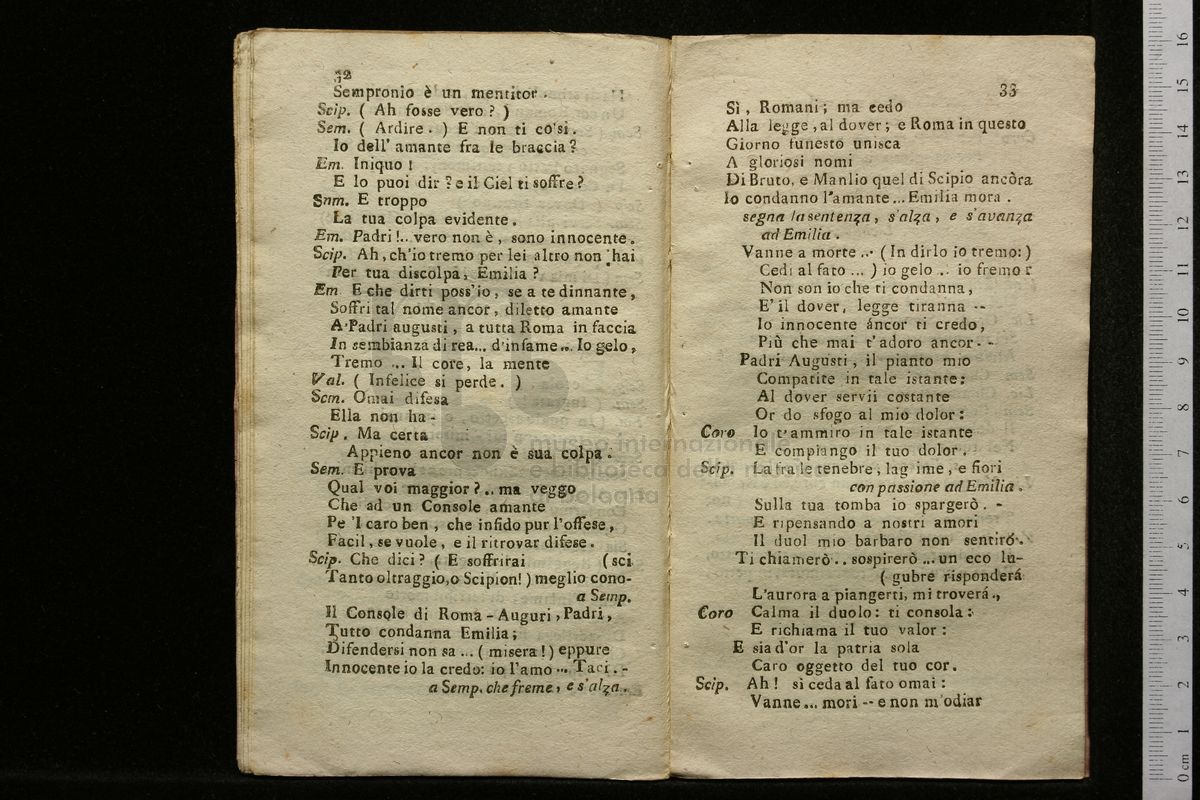 32
Sempronio è un mentitor.
Scip. ( Ah fosse vero ? )
Sem. ( Ardire. ) E non ti co'si.
Io dell' amante fra le braccia?
Em. Iniquo !
E lo puoi dir ? e il Ciel ti soffre ?
Snm. E troppo
La tua colpa evidente.
Em. Padri !.. vero non è, sono innocente.
Scip. Ah, ch'io tremo per lei altro non hai
Per tua discolpa, Emilia ?
Em E che dirti poss'io, se a te dinnante,
Soffri tal nome ancor, diletto amante
A'Padri augusti, a tutta Roma in faccia
In sembianza di rea... d'infame... Io gelo,
Tremo ... Il core, la mente
Val. ( Infelice si perde. )
Sem. Omai difesa
Ella non ha -
Scip. Ma certa
Appieno ancor non è sua colpa.
Sem. E prova
Qual voi maggior ?.. ma veggo
Che ad un Console amante
Pe 'l caro ben, che infido pur l'offese,
Facil, se vuole, e il ritrovar difese.
Scip. Che dici? ( E soffrirai (sci
Tanto oltraggio, o Scipion! ) meglio cono-
a Semp.
Il Console di Roma - Auguri, Padri,
Tutto condanna Emilia;
Difendersi non sa ... ( misera ! ) eppure
Innocente io la credo: io l'amo ... Taci. -
a Semp. che freme, e s'alza.
33
Sì, Romani; ma cedo
Alla legge, al dover; e Roma in questo
Giorno funesto unisca
A gloriosi nomi
Di Bruto, e Manlio quel di Scipio ancòra
Io condanno l'amante... Emilia mora.
segna la sentenza, s'alza, e s'avanza
ad Emilia.
Vanne a morte ... ( In dirlo io tremo: )
Cedi al fato ... ) io gelo .. io fremo :
Non son io che ti condanna,
E' il dover, legge tiranna --
Io innocente áncor ti credo,
Più che mai t'adoro ancor. -
Padri Augusti, il pianto mio
Compatite in tale istante:
Al dover servii costante
Or do sfogo al mio dolor:
Coro Io t'ammiro in tale istante
E compiango il tuo dolor.
Scip. La fra le tenebre, lag ime, e fiori
con passione ad Emilia.
Sulla tua tomba io spargerò. -
E ripensando a nostri amori
Il duol mio barbaro non sentiró.
Ti chiamerò .. sospirerò ... un eco lù-
( gubre risponderá
L'aurora a piangerti, mi troverá.,
Coro Calma il duolo: ti consola:
E richiama il tuo valor:
E sia d'or la patria sola
Caro oggetto del tuo cor.
Scip. Ah ! sì ceda al fato omai:
Vanne... mori -- e non m'odiar
museo internazionale
e biblioteca della musica
di bologna
0 cm 1 2 3 4 5 6 7 8 9 10 11 12 13 14 15 16